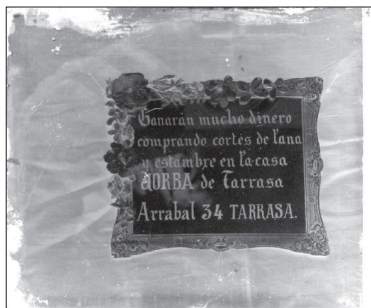 Ganarán mucho dinero
comprando cortes de lana
y estambre en la casa
JORBA de Tarrasa
Arrabal 34 TARRASA.